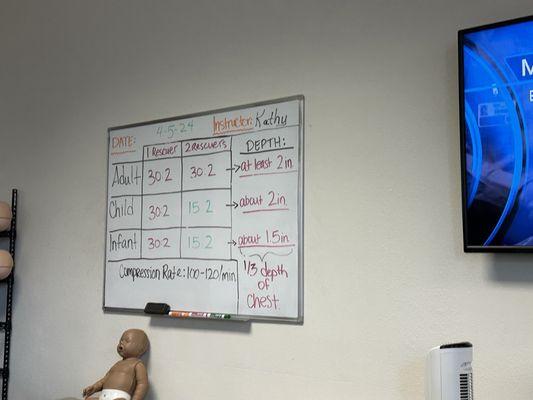 DATE: 4-5-24 Instructor: Kathy
1 Rescuer 2 Rescuers DEPTH:
Adult 30:2 30:2 → at least 2 in
Child 30:2 15:2 → about 2 in
Infant 30:2 15:2 → about 1.5 in
Compression Rate: 100-120/min
1/3 depth
of
Chest
M